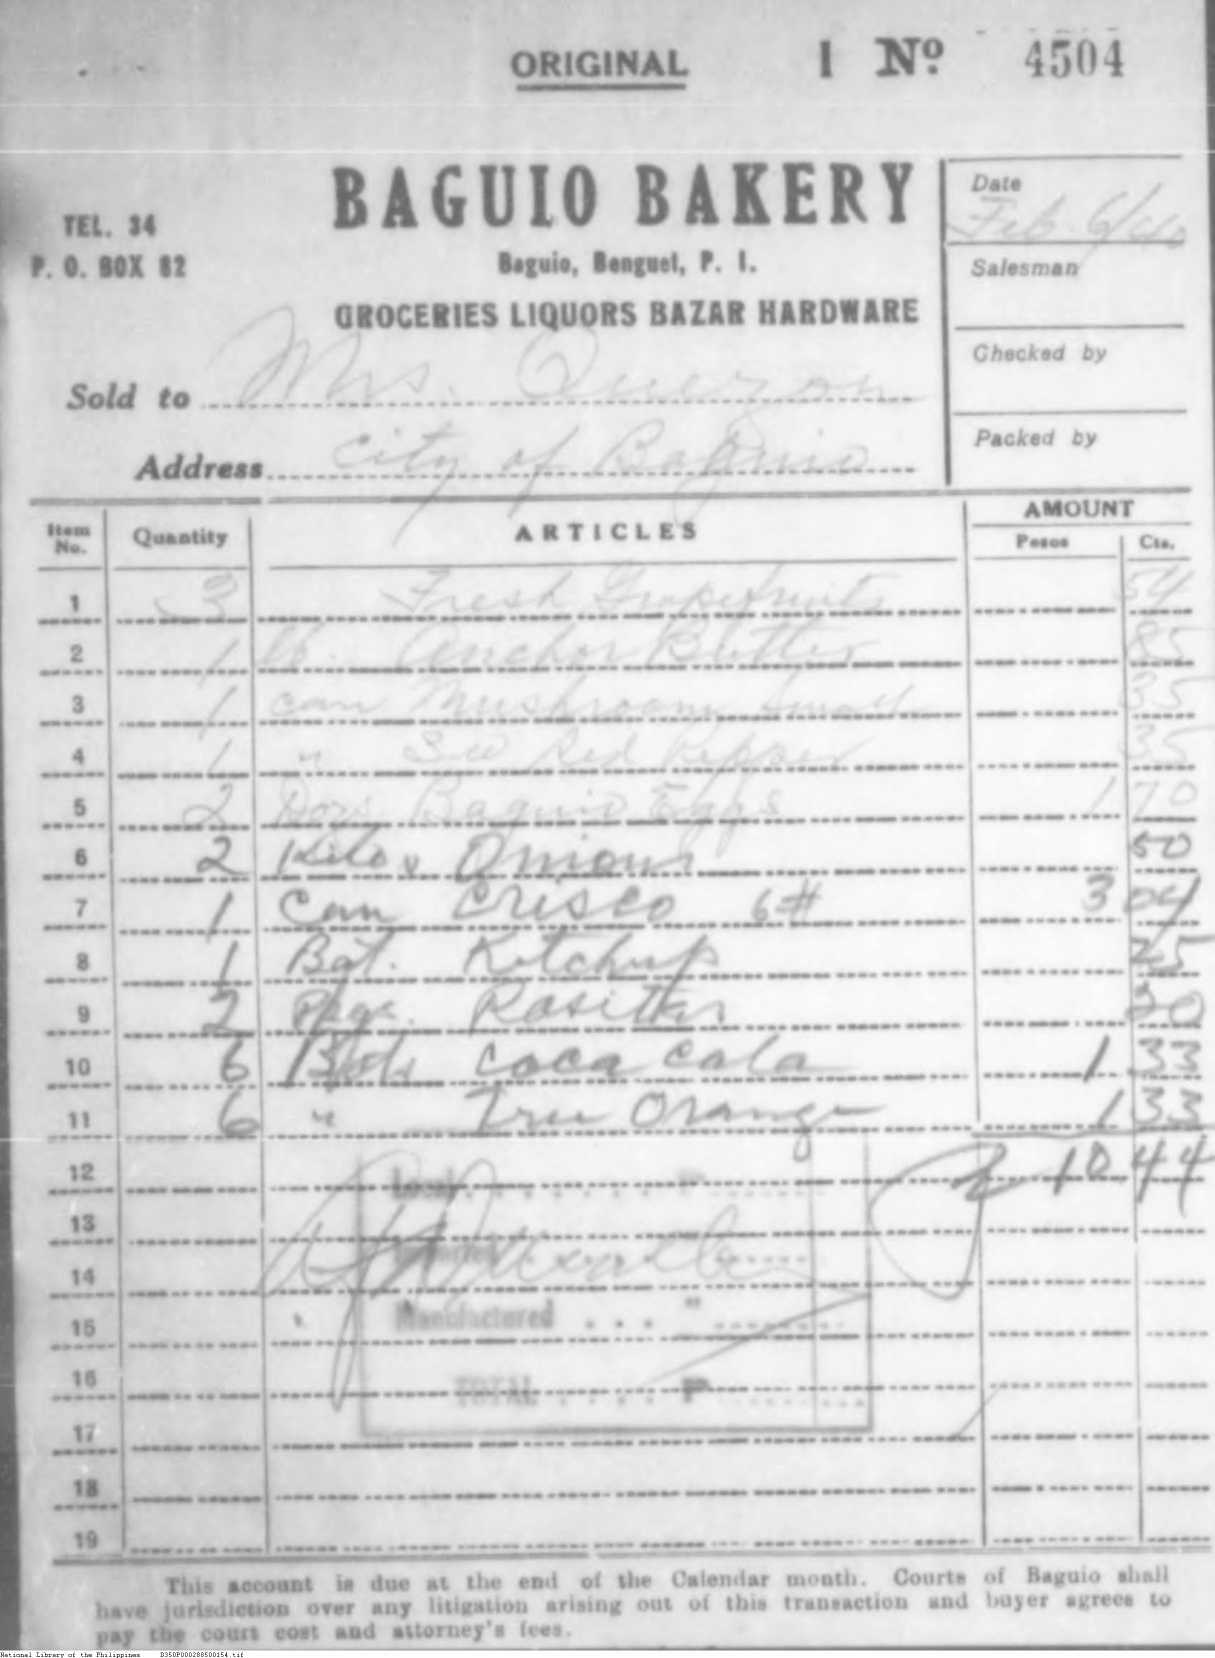 ORIGINAL 1 Nº 4504
BAGUIO BAKERY
TEL. 34
P. O. BOX 82
Baguio, Benguet, P. I.
GROCERIES LIQUORS BAZAR HARDWARE
Date
Feb. 6/40
Salesman
Checked by
Packed by
Sold to Mrs. Quezon
Address City of Baguio
Item No. Quantity ARTICLES AMOUNT Pesos Cts.
1 3 Fresh Grapefruits 54
2 1 lb. Anchor Butter 85
3 1 can Mushroom small 35
4 1 " Red Pepper 35
5 2 Doz. Baguio Eggs 1 70
6 2 Kilos Onions 50
7 1 Can Crisco 6# 3 04
8 1 Bot. Ketchup
9 2 Pkgs.
10 6 Bots Coca Cola 1 33
11 6 " Tru Orange 1 33
12 10 44
13
14
15
16
17
18
19
Local
Manufactured . . . "
TOTAL . . . . P
This account is due at the end of the Calendar month. Courts of Baguio shall
have jurisdiction over any litigation arising out of this transaction and buyer agrees to
pay the court cost and attorney's fees.
National Library of the Philippines B350P000288500154.tif